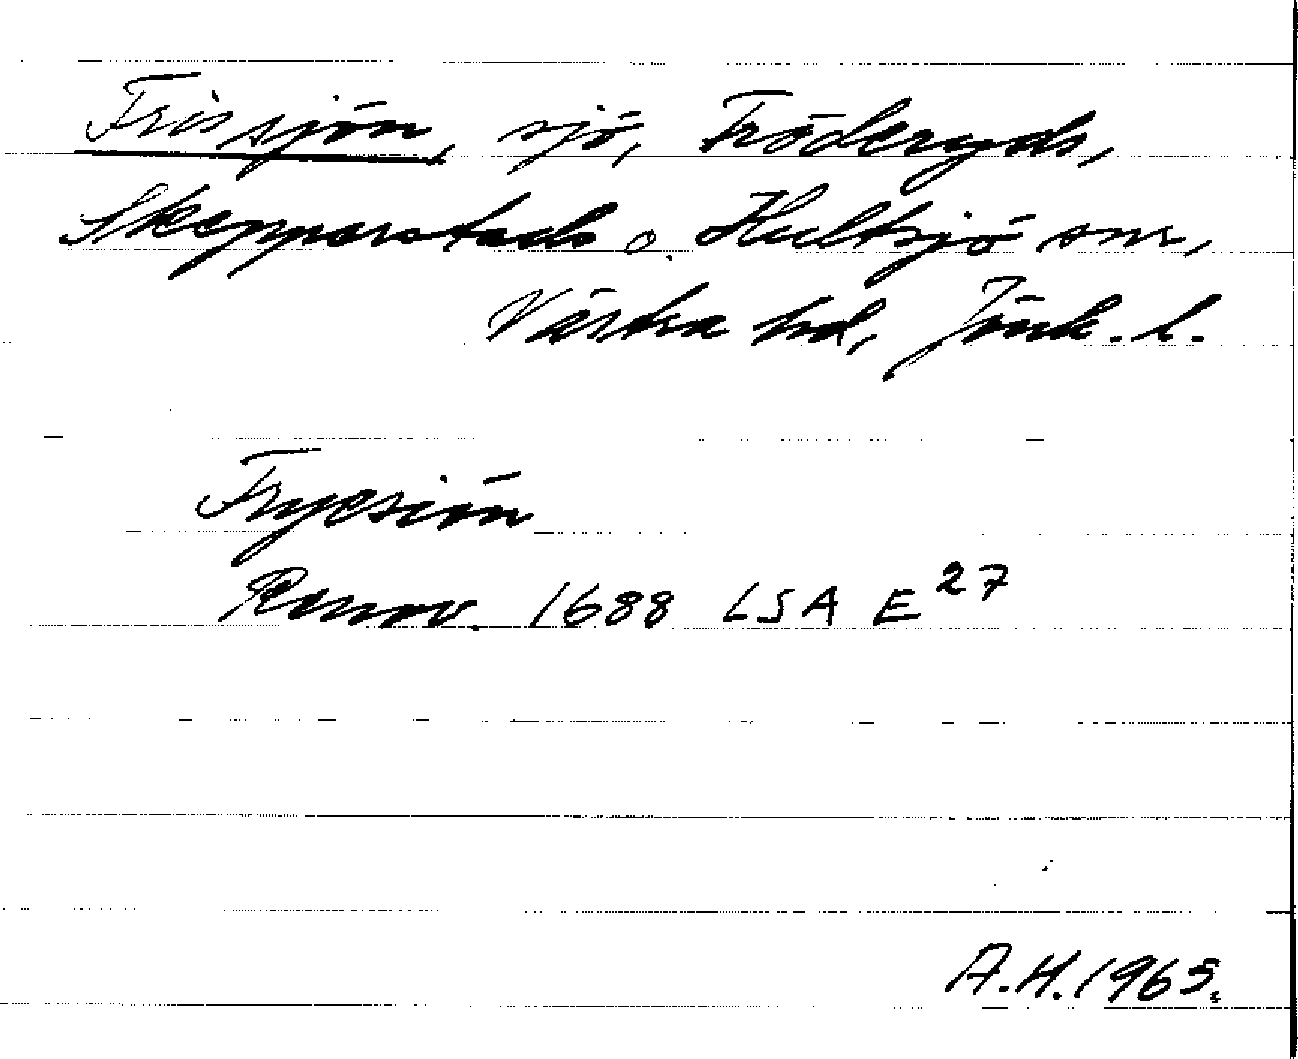 Frissjön, sjö, Fröderyds,
Skepperstads o. Hultsjö snr,
Västra hd, Jönk. l.
Frycsiön
Renov. 1688 LSA E 27
A.H. 1965.